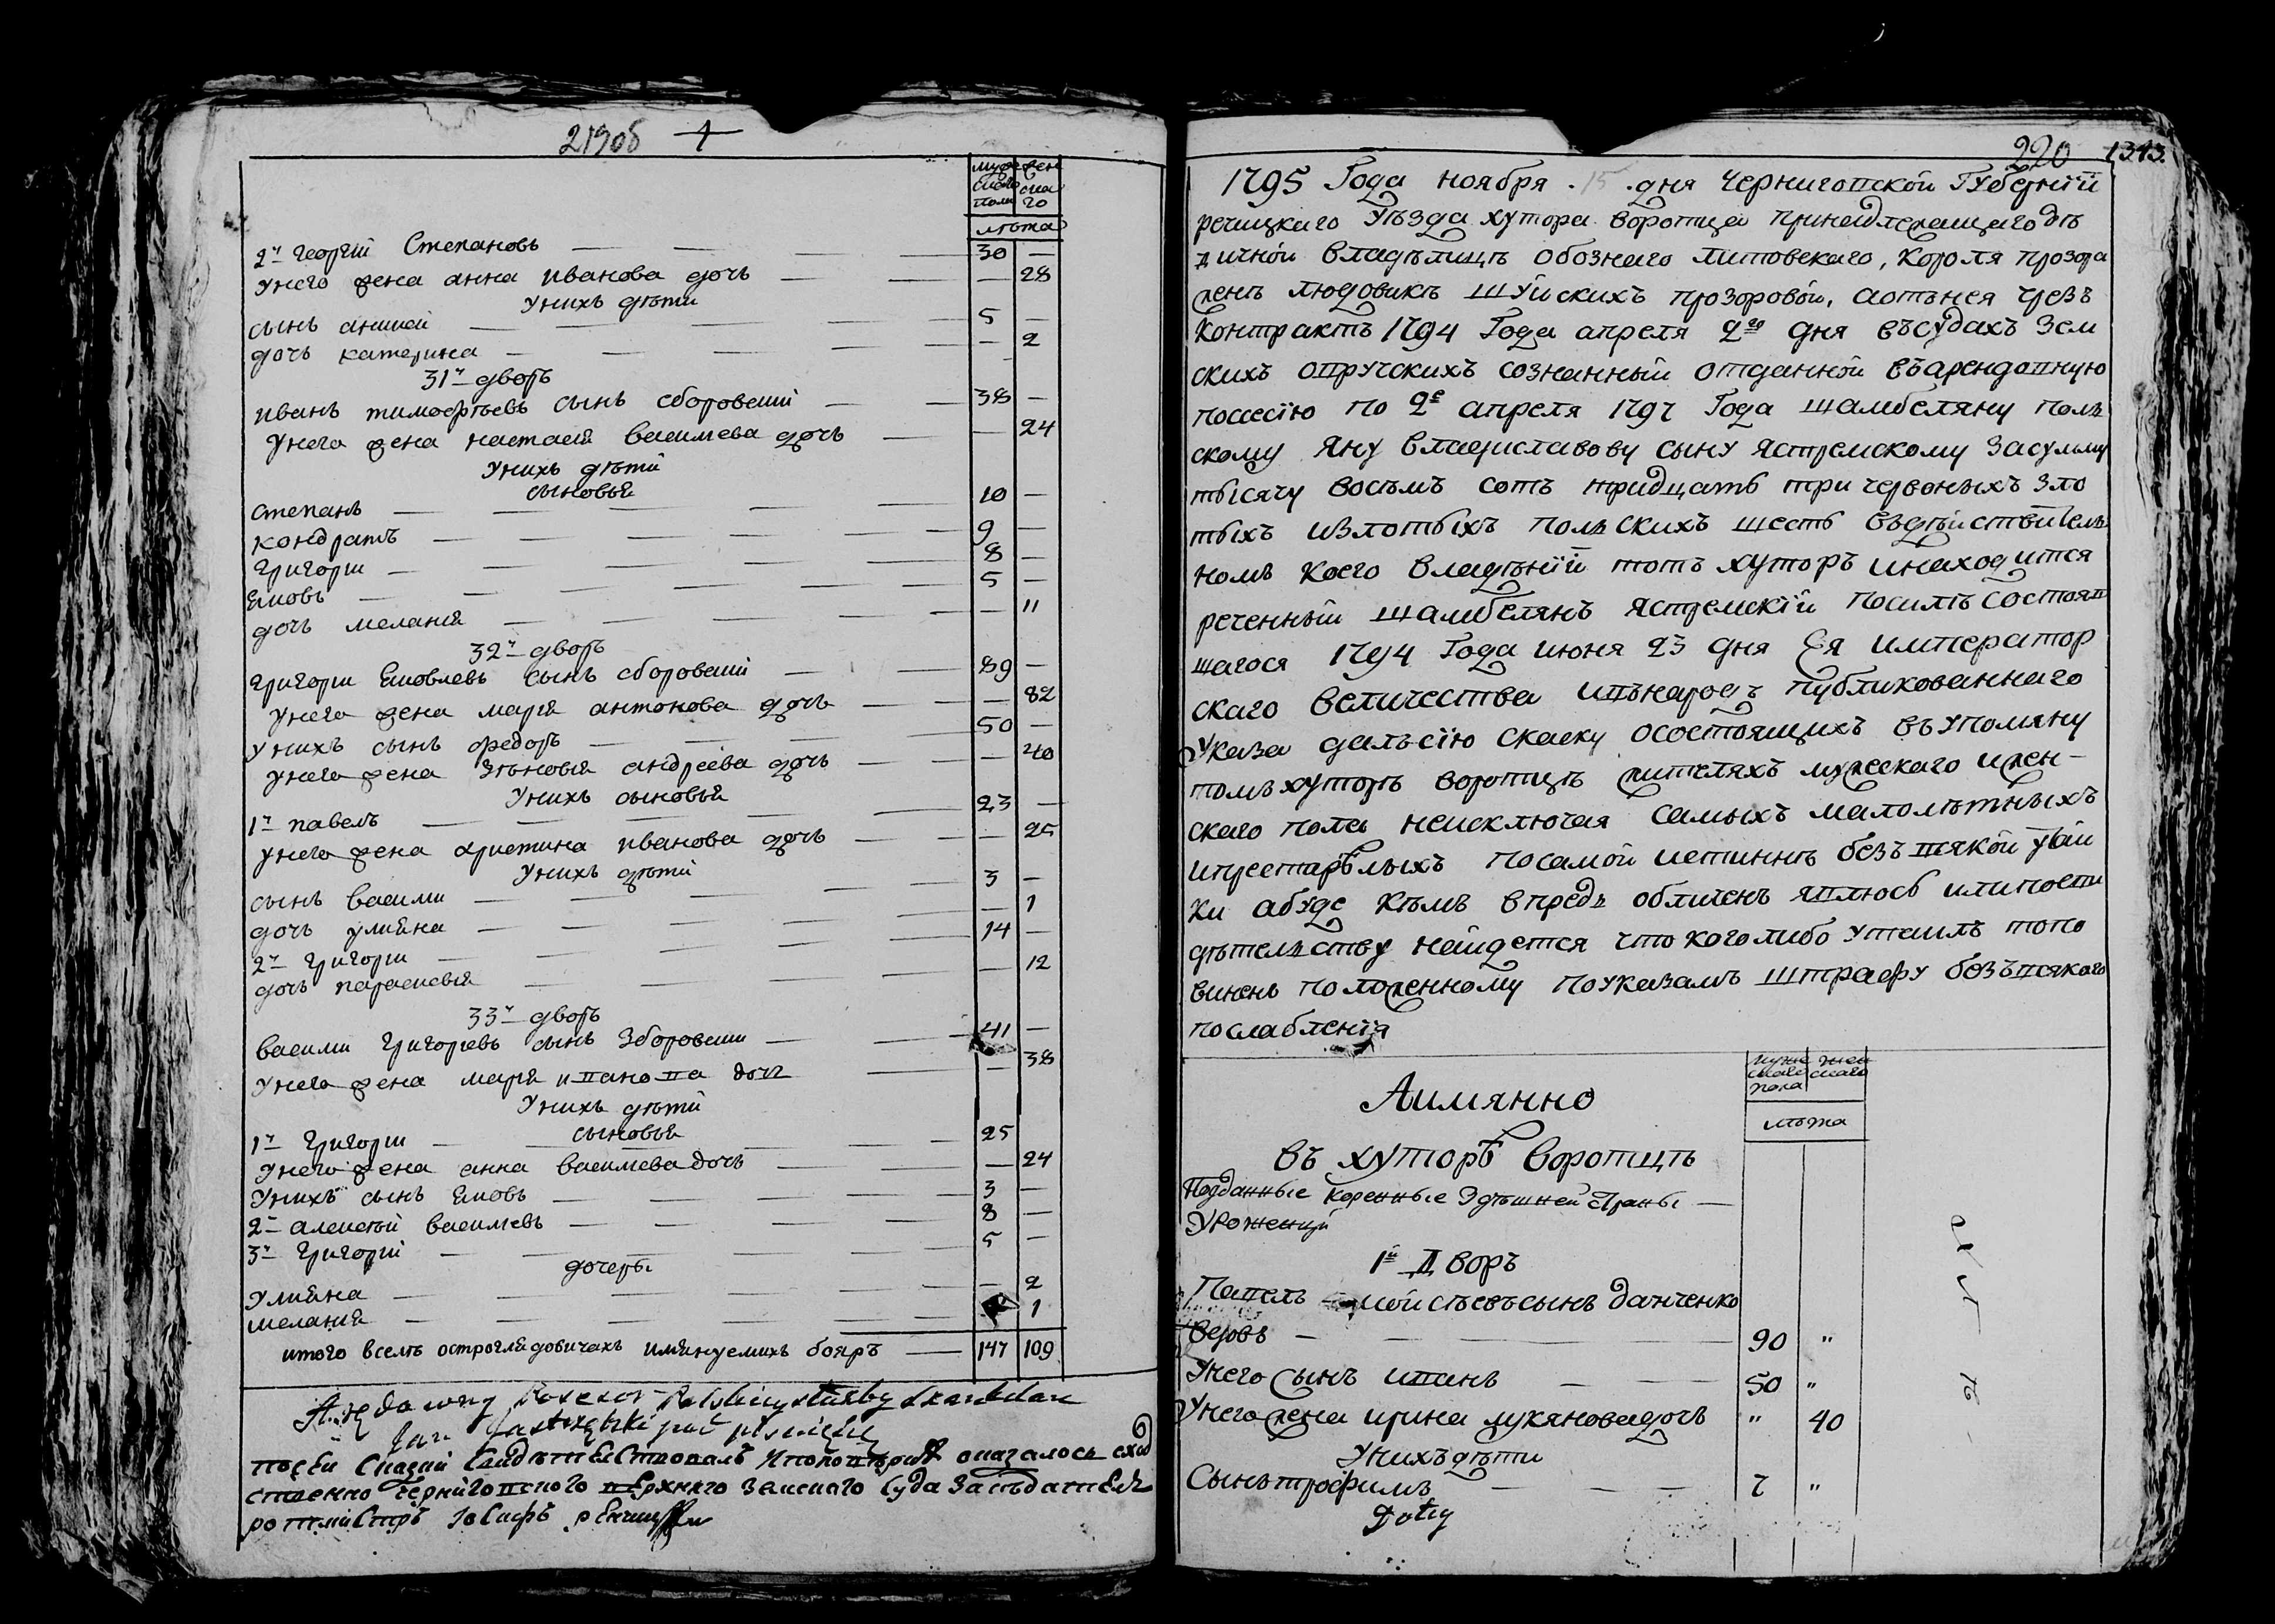 219об
муже
скаго
пола
жен
ска
го
лѣта
2й Георгій Степановъ 30 —
Унего жена анна иванова дочь — 28
Унихъ дѣти
сынъ 5 —
дочь катерина — 2
31й дворъ
иванъ тимофѣевъ сынъ сборовски 38 —
Унего жена настасія василева дочь — 24
Унихъ дѣти
сыновья
степанъ 10 —
кондратъ 9 —
григори 8 —
яковъ 5 —
дочь меланія — 11
32й дворъ
григори яковлевъ сынъ сборовски 89 —
Унего жена марія антонова дочь — 82
Унихъ сынъ федоръ 50 —
Унего жена зѣновія андреева дочь — 40
Унихъ сыновья
1й павелъ 23 —
Унего жена христина иванова дочь — 25
Унихъ дѣти
сынъ васили 3 —
дочь улияна — 1
2й григори 14 —
дочь параскевія — 12
33й дворъ
васили григоревъ сынъ зборовски 41 —
Унего жена марія иванова дочь — 38
Унихъ дѣти
сыновья
1й григори 25
Унего жена анна василева дочь — 24
Унихъ сынъ яковъ 3 —
2й алексѣй василевъ 8 —
3й григорій 5 —
дочеры
улияна — 2
меланія 1
итого всѣхъ остроглядовичахъ имянуемихъ бояръ 147 109
посей сказки свидѣтелствовалъ иповѣрить оказалось сход
ственно черниговского верхнего земского суда засѣдатель
ротмистръ Iосифъ
220 1313
1795 Года ноября 15 дня Черниговской Губерніи
речицкаго Уѣзда хутора воротца принадлежащаго дѣ
дичной владѣлицѣ обознаго литовскаго, короля прозора
женѣ людовикѣ шуйскихъ прозоровой, аотънея чрезъ
контрактъ 1794 Года апреля 2го дня въсудахъ зем
скихъ овручскихъ сознанный отданной въарендовную
поссесію по 2е апреля 1797 Года шамбеляну поль
скому яну владиславову сыну ястремскому засумму
тысячу восемъ сотъ тридцать три червоныхъ зло
тыхъ излотыхъ польскихъ шесть въдѣйствитель
номъ коего владѣніи тотъ хуторъ инаходится
реченный шамбелянъ ястремскій посилѣ состояв
шагося 1794 Года июня 23 дня Ея император
скаго величества ивънародъ публикованнаго
Указа далъсію скаску осостоящихъ въупомяну
томъхуторѣ воротцѣ жителяхъ мужескаго ижен-
скаго пола неисключая самыхъ малолѣтныхъ
ипрестарѣлыхъ посамой истиннѣ безъ всякой утай
ки абуде кѣмъ впредь обличенъ явлюсь илипосви
дѣтельству найдется что коголибо утаилъ топо
виненъ положенному поуказамъ штрафу безъвсякого
послабленія
муже
скаго
пола
жен
скаго
лѣта
Аимянно
въ хуторѣ воротцѣ
Подданные коренные здѣшней страны
Уроженцы
1й Дворъ
Павелъ мойсѣевъсынъ данченко
вдовъ 90 "
Унего сынъ иванъ 50 "
Унего жена ирина лукяновадочь " 40
Унихъдѣти
Сынътрофимъ 7 "